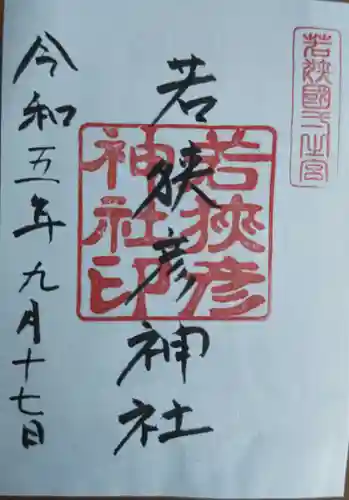 若狭國一之宮
若狭彦神社
若狭彦
神社印
令和五年九月十七日